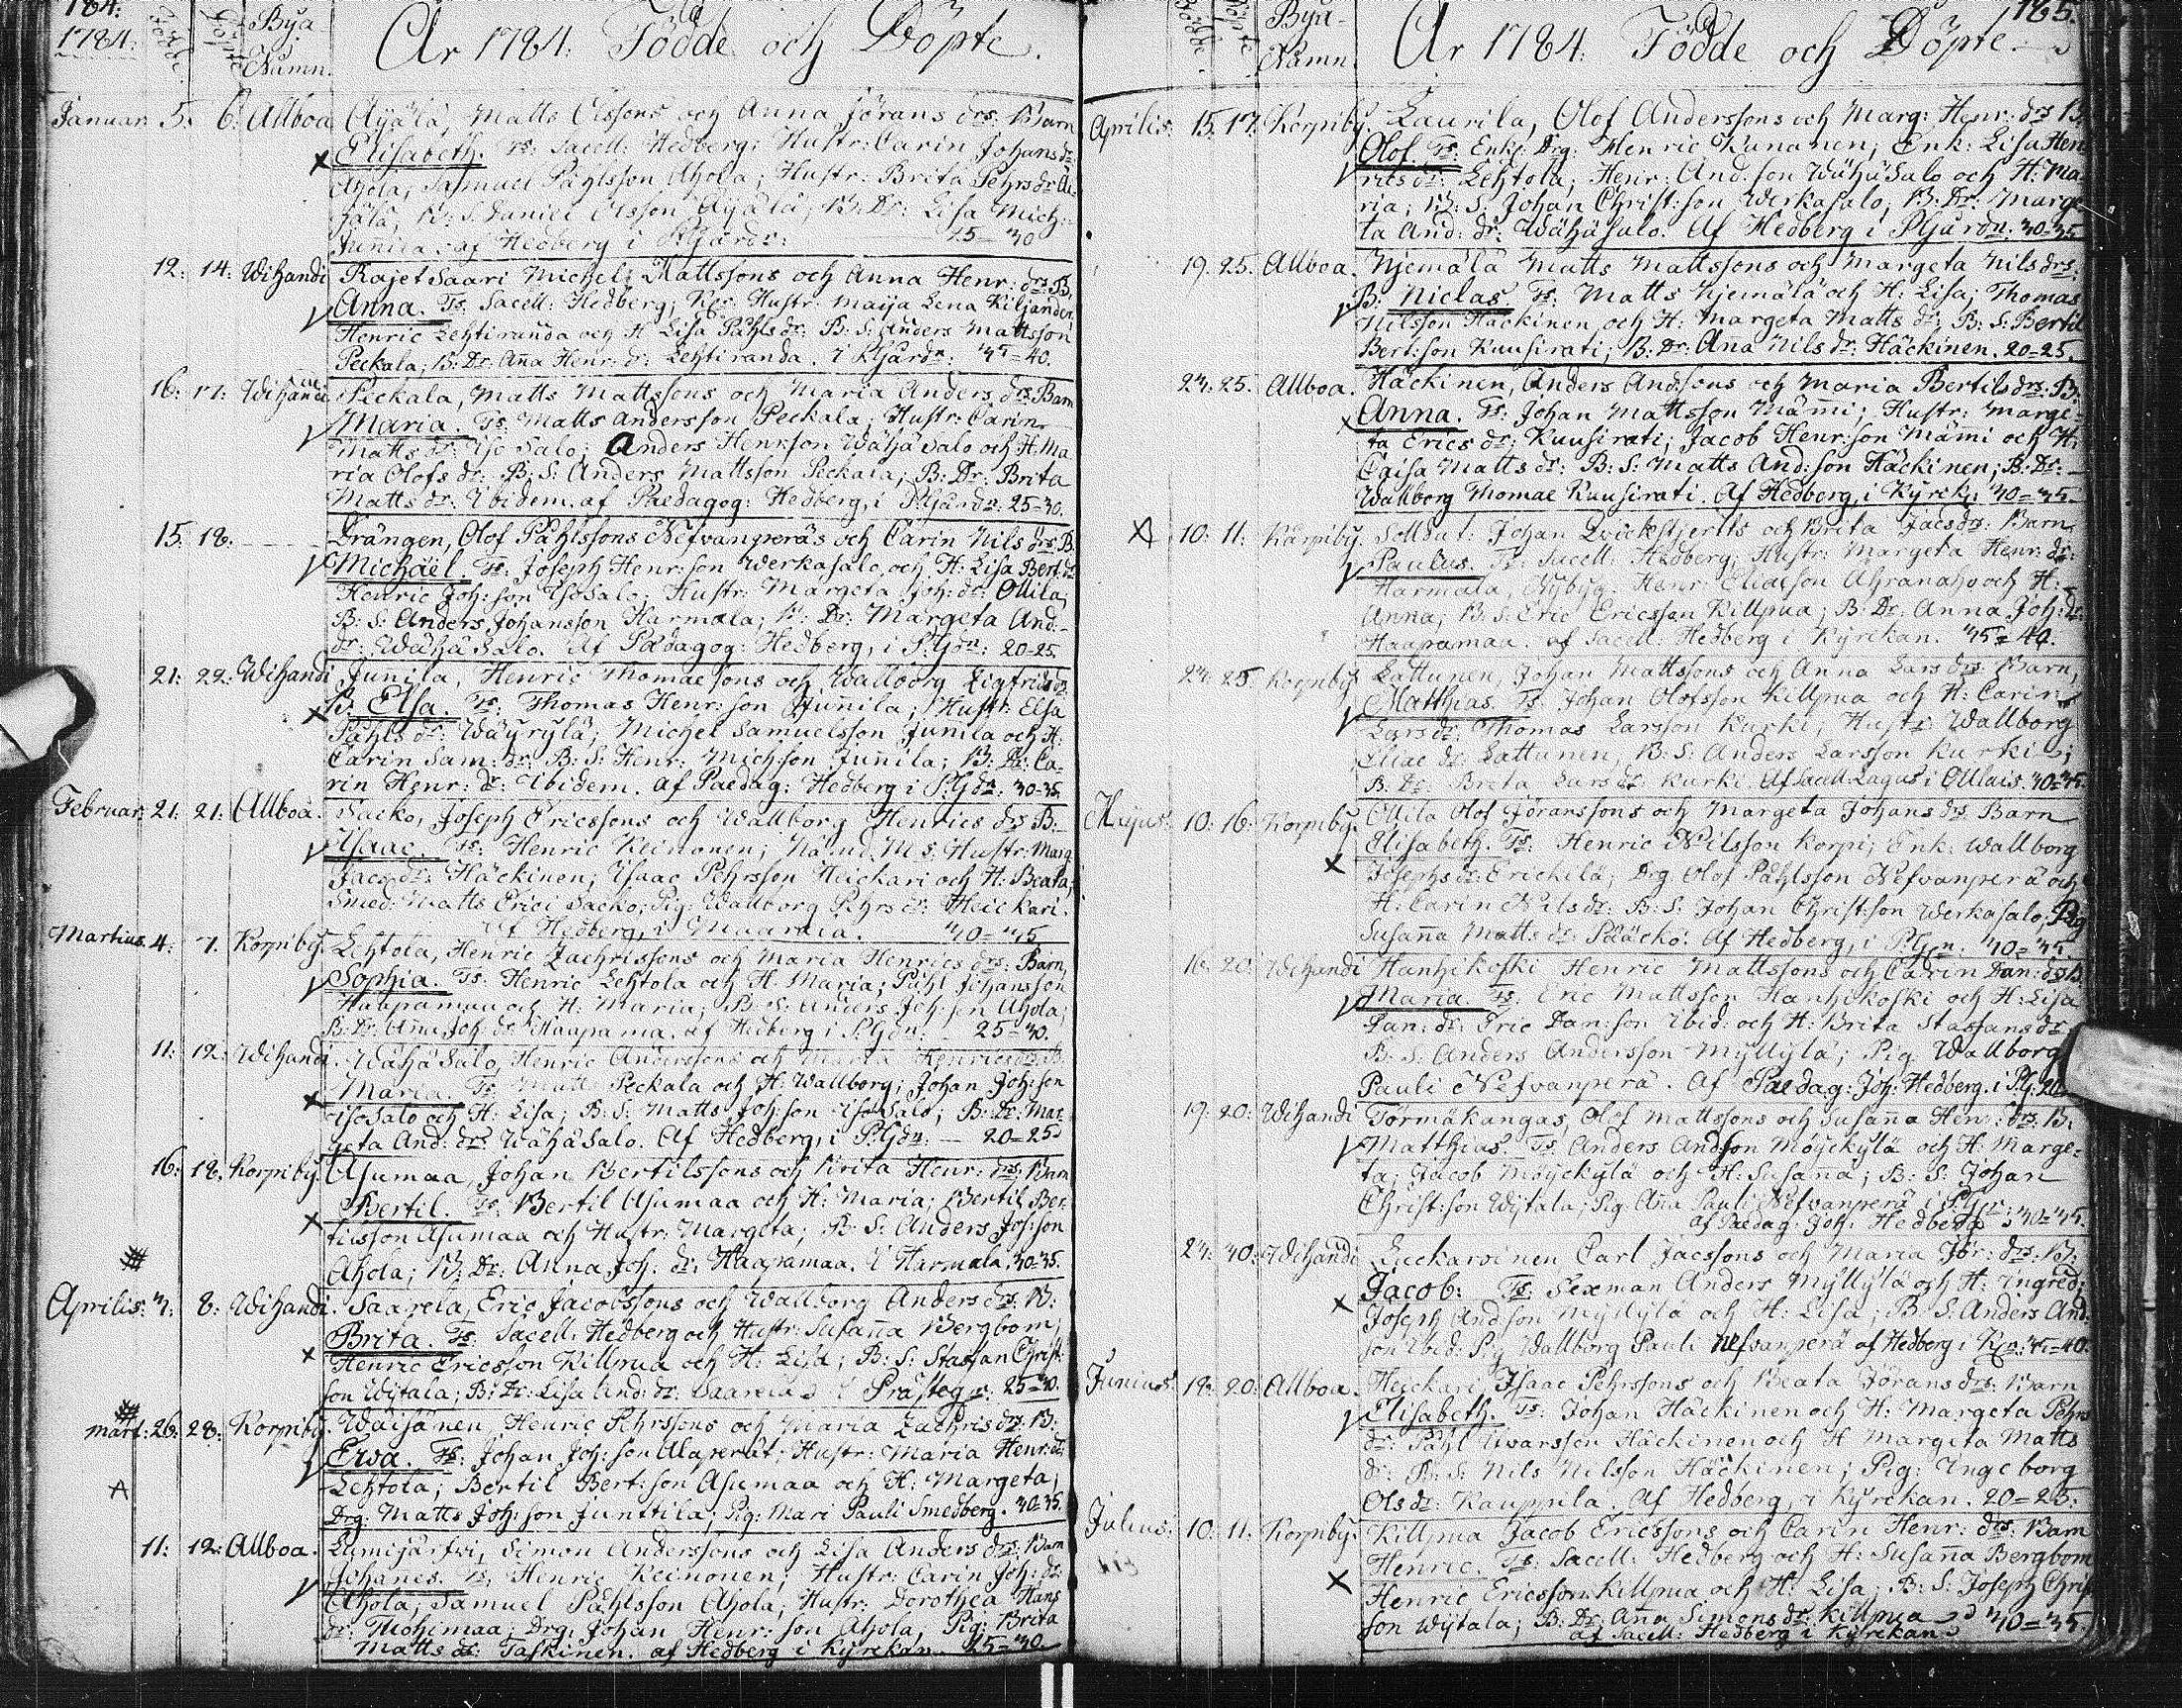 184.
1784. Födde. Döpte Bya Namn. År 1784: Födde och Döpte.
Januar: 5. 6. Allboa Äÿälä, Matts Olssons och Anna Jörans drs. Barn
Elisabeth. Ts: Sacell: Hedberg; Hustr: Carin Johans dr
Ahola, Samuel Påhlsson Ahola; Hustr: Brita Pehrs dr Äi-
jälä, B: S: Daniel Olsson Äÿälä; B: Dr: Lisa Mich:
Junila. af Hedberg i P:Gårdn: 25=30
12: 14: Wihandi Rajetsaari Michel Mattssons och Anna Henr: drs B.
Anna. Ts. Sacell: Hedberg; Hustr: Maija Lena Kiljander
Henric Lehtiranda och H Lisa Påhls dr: B: S: Anders Mattsson
Peckala; B: Dr: Aña Henr: dr: Lehtiranda. i P:Gårdn: 35=40.
16: 17: Wihandi Peckala, Matts Mattssons och Maria Anders drs Barn
Maria. Ts. Matts Andersson Peckala; Hustr: Carin
Matts dr: Iso Salo; Anders Henr:son Wähä Salo och H. Ma
ria Olofs dr: B: S: Anders Mattsson Peckala, B: Dr: Brita
Matts dr. Ibidem. af Paedagog: Hedberg, i P:Gårdn: 25=30.
15: 18. Drängen, Olof Påhlssons Nefvanperäs och Carin Nils drs B.
Michäël. Ts: Joseph Henr:son Werkasalo, och H: Lisa Bert. dr
Henric Joh:son Isosalo; Hustr: Margeta Joh: dr: Ollila;
B: S: Anders Johansson Harmala; B: Dr: Margeta And:
dr: Wähä Salo. Af Paedagog: Hedberg, i P:Gdn: 20-25
21: 22: Wihandi Juñila, Henric Thomaesons och Wallborg Sigfrids dr
B: Elsa. Ts: Thomas Henr:son Juñila; Hustr: Elsa
Påhls dr: Wäÿrylä; Michel Samuelsson Junila och H:
Carin Sam: dr: B: S: Henr: Mich:son Juñila; B: Dr: Ca-
rin Henr: dr: Ibidem. af Paedag: Hedberg i P:Gdn: 30=35.
Februar: 21: 21: Allboa. Sacko, Joseph Ericssons och Wallborg Henrics drs B:
Isaac. Ts: Henric Keinonen; Hustr: Marg
Jacs dr: Häckinen; Isaac Pehrsson Heickari och H: Beata;
Smed: Matts Erici Sacko, Pig: Wallborg Pehrs dr: Heickari.
Af Hedberg, i 30=35
Martius. 4: 7. Korpiby. Lehtola, Henric Zachrissons och Maria Henrics drs: Barn,
Sophia. Ts: Henric Lehtola och H. Maria; Påhl Johansson
Haapamaa och H: Maria; B: S: Anders Joh:son Ahola;
B: Dr: Aña Joh: dr Haapama. af Hedberg i P:Gdn: 25=30.
11: 12: Wihandi. Wähä Salo, Henric Anderssons och Maria Henrics drs B:
Maria. Ts: Matts Peckala och H: Wallborg; Johan Joh:son
Isosalo och H: Lisa; B: S: Matts Joh:son Iso Salo; B: Dr: Mar-
geta And: dr: Wähä Salo. Af Hedberg, i P:Gdn: — 20=25
16: 18. Korpiby. Asumaa, Johan Bertilssons och Brita Henr: drs: Barn
Bertil. Ts. Bertil Asumaa och H: Maria; Bertil Ber-
tilsson Asumaa och Hustr: Margeta; B: S: Anders Joh:son
Ahola; B: Dr: Anna Joh: dr: Haapamaa. i Harmala. 30=35.
Aprilis: 7: 8: Wihandi. Saarela, Eric Jacobssons och Wallborg Anders drs: B:
Brita. Ts: Sacell: Hedberg och Hustr: Susaña Bergbom;
Henric Ericsson Killpua och H: Lisa; B: S: Staffan Christ:
son Wijtala; B: Dr: Lisa And: dr: Saarela i Prästeg: 25=30.
Mart: 26: 28: Korpiby. Waisänen, Henric Pehrssons och Maria Zachris drs: B:
Ewa. Ts: Johan Joh:son Alaperät; Hustr: Maria Henr: dr
Lehtola; Bertil Bert:son Asumaa och H: Margeta;
Drg: Matts Joh:son Junttila; Pig: Mari Pauli Smedberg. 30=35.
11: 12: Allboa. Lumijärfwi, Simon Anderssons och Lisa Anders drs: Barn
Johanes. Ts, Henric Keinonen; Hustr: Carin Joh: dr:
Ahola; Samuel Påhlsson Ahola; Hustr: Dorothea Hans
dr: Drg: Johan Henr:son Ahola, Pig: Brita
Matts dr: Taskinen. af Hedberg i Kyrckan. 25=30
185.
Födde. Döpte Bya-Namn. År 1784: Födde och Döpte.
Aprilis: 15. 17. Korpiby. Laurila, Olof Anderssons och Marg: Henr: drs B.
Olof. Ts: Enkl: Drg: Henric Kunanen; Enk: Lisa Hen
rics dr: Lehtola; Henr: And.son Wähä Salo och H: Ma-
ria; B: S: Johan Christ:son Werkasalo; B: Dr: Marge
ta And: dr: Wähä Salo. Af Hedberg i P:Gårdn: 30=35
19. 25. Allboa. Njemälä Matts Mattssons och Margeta Nils drs:
B: Niclas. Ts: Matts Njemälä och H: Lisa; Thomas
Nilsson Häckinen, och H: Margeta Matts dr; B: S: Bertil
Bert:son Kuusirati; B: Dr: Ana Nils dr: Häckinen. 20=25.
23: 25. Allboa. Häckinen, Anders And:sons och Maria Bertils drs. B:
Anna. Ts: Johan Mattsson Mäm̄i; Hustr: Marge-
ta Erics dr: Kuusirati; Jacob Henr:son Mäm̄i och H:
Caisa Matts dr: B: S: Matts And:son Häckinen; B: Dr:
Wallborg Thomae Kuusirati. Af Hedberg, i Kÿrck: 30=35.
10: 11: Karpiby. Solldat: Johan Qwickstjertts och Brita Jacs drs: Barn
Paulus. Ts: Sacell: Hedberg; Hustr: Margeta Henr: dr:
Harmala, Nybyg: Henr: Eliaeson Ahranaho och H:
Anna; B: S: Eric Ericsson Killpua; B: Dr: Anna Joh: dr
Haapamaa. af Sacell: Hedberg i Kÿrckan. 35=40.
23: 25. Korpiby. Lattunen, Johan Mattssons och Anna Lars drs: Barn,
Matthias. Ts: Johan Olofsson Killpua och H: Carin
Lars dr: Thomas Larsson Kurki; Hustr: Wallborg
Eliae dr: Lattunen, B: S: Anders Larsson Kurki;
B: Dr: Breta Lars dr Kurki. Af Sacell: Lagus i 30=35.
Majus: 10: 16: Korpiby. Ollila Olof Jöranssons och Margeta Johans drs Barn
Elisabeth. Ts: Henric Nilsson Korpi; Enk: Wallborg
Josephs dr: Erickilä; Drg Olof Påhlsson Nefvanperä och
H: Carin Nils dr: B: S: Johan Christ:son Werkasalo; Pig
Susaña Matts dr Pläckö. Af Hedberg, i P:Gn: 30=35.
16. 20: Wihandi Hanhikoski Henric Mattssons och Carin Dan: drs B
Maria. Ts: Eric Mattsson Hanhikoski och H: Lisa
Dan: dr: Eric Dan:son Ibid: och H: Brita Staffans dr.
B: S: Anders Andersson Myllylä; Pig. Wallborg
Pauli Nefvanperä. Af Paedag: Joh: Hedberg. i P:G: 20
19: 20: Wihandi Törmäkangas, Olof Mattssons och Susaña Henr: drs: B:
Matthias. Ts. Anders And:son Möÿckylä och H: Marge-
ta; Jacob Möÿckylä och H: Susaña; B: S: Johan
Christ:son Wijtala; Pig. Aña Pauli Nefvanperä i P:Gn:
af Paedag: Joh: Hedberg 30=35.
23: 30: Wihandi Luckaroinen Carl Jacssons och Maria Jör: drs. B:
Jacob: Ts: Sexman Anders Myllylä och H: Ingred;
Joseph And:son Myllylä och H: Lisa; B: S: Anders And:
son Ibid: Pig Wallborg Pauli Nefvanperä af Hedberg i 35=40.
Junius. 18: 20: Allboa. Heickari Isaac Pehrssons och Beata Jörans drs: Barn
Elisabeth. Ts: Johan Häckinen och H: Margeta Pehrs
dr: Påhl Iwarsson Häckinen och H Margeta Matts
dr: B: S: Nils Nilsson Häckinen; Pig: Ingeborg
Ols dr: Kauppila. Af Hedberg, i Kyrckan. 20=25.
Julius: 10: 11. Korpiby. Killpua Jacob Ericssons och Carin Henr: drs: Barn
Henric. Ts: Sacell: Hedberg och H: Susaña Bergbom
Henric Ericsson Killpua och H: Lisa; B: S: Joseph Christ
son Wijtala; B: Dr: Aña Simons dr: Killpua 30=35.
af Sacell: Hedberg i Kyrckan